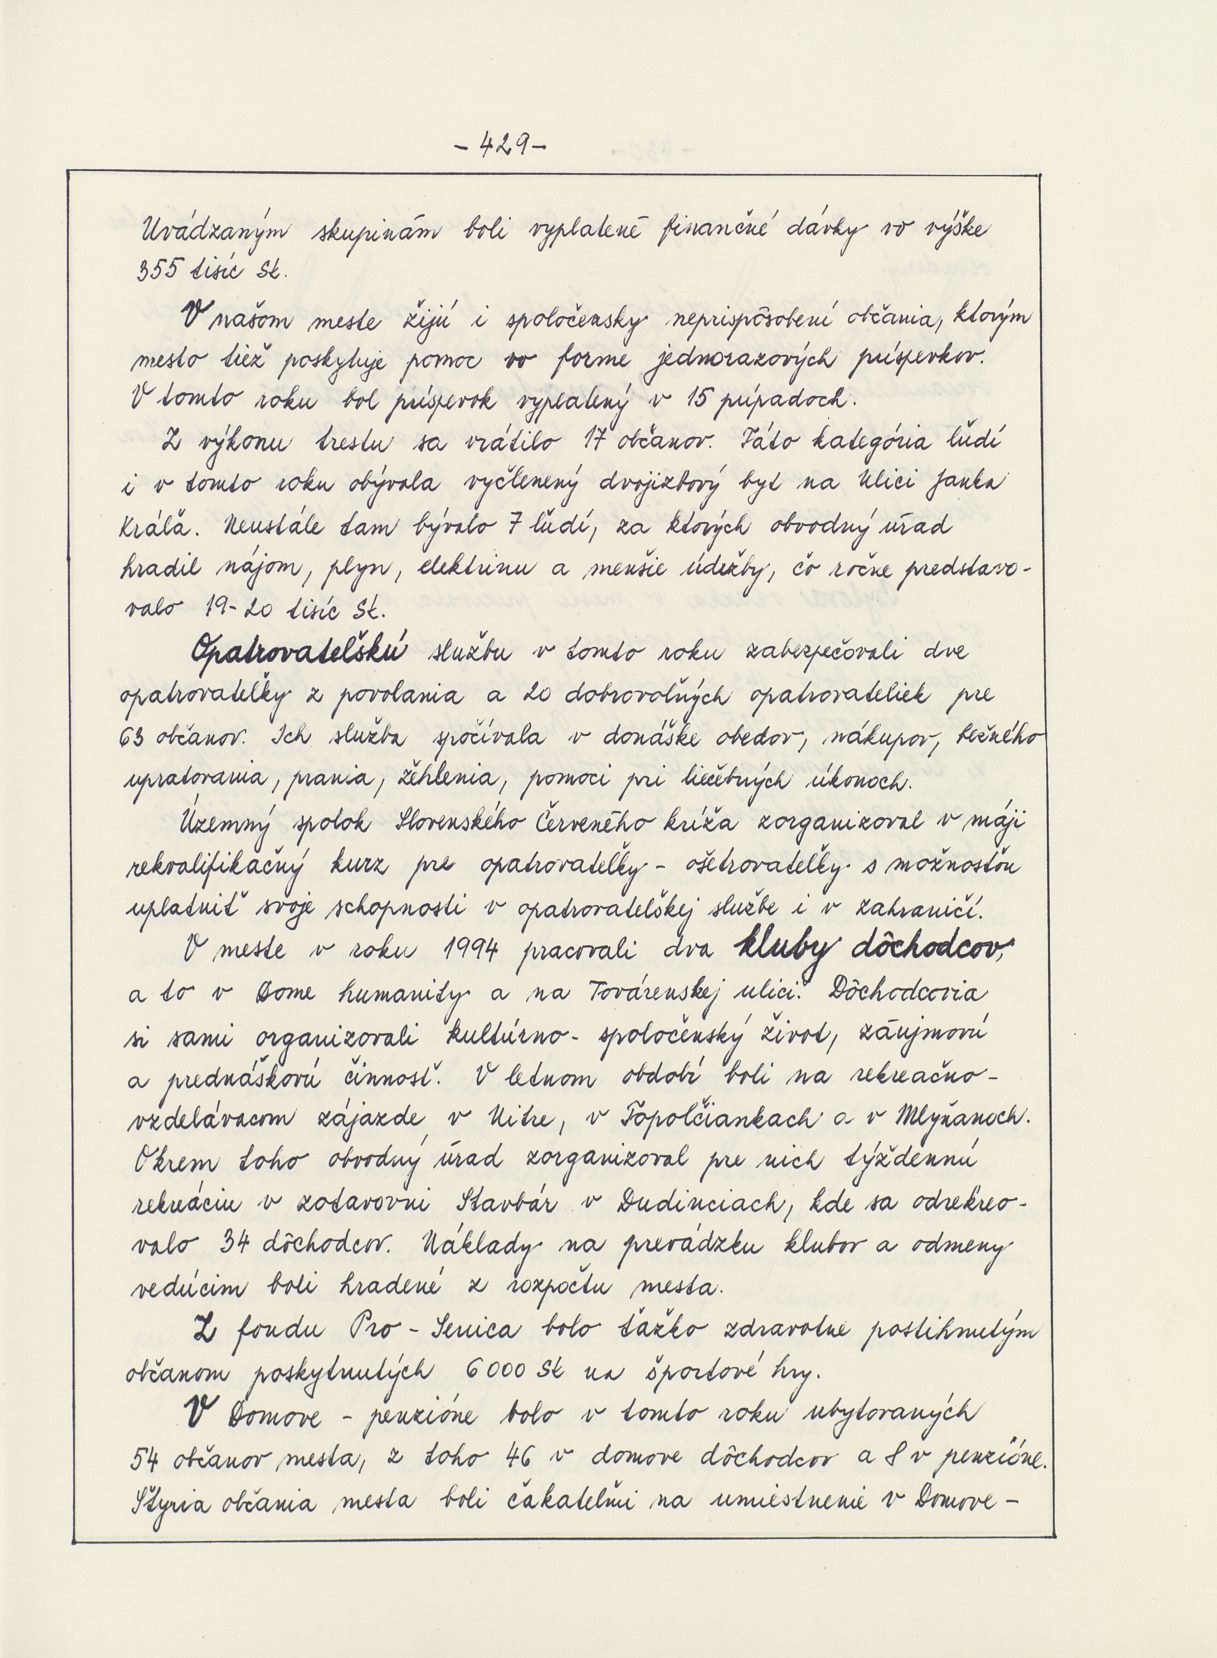 - 429 -
Uvádzaným skupinám boli vyplatené finančné dávky vo výške
355 tisíc Sk.
V našom meste žijú i spoločensky neprispôsobení občania, ktorým
mesto tiež poskytuje pomoc vo forme jednorazových príspevkov.
V tomto roku bol príspevok vyplatený v 15 prípadoch.
Z výkonu trestu sa vrátilo 17 občanov. Táto kategória ľudí
i v tomto roku obývala vyčlenený dvojizbový byt na Ulici Janka
Kráľa. Neustále tam bývalo 7 ľudí, za ktorých obvodný úrad
hradil nájom, plyn, elektrinu a menšie údržby, čo ročne predstavo-
valo 19-20 tisíc Sk.
Opatrovateľskú službu v tomto roku zabezpečovali dve
opatrovateľky z povolania a 20 dobrovoľných opatrovateliek pre
63 občanov. Ich služba spočívala v donáške obedov, nákupov, bežného
upratovania, prania, žehlenia, pomoci pri liečebných úkonoch.
Územný spolok Slovenského Červeného kríža zorganizoval v máji
rekvalifikačný kurz pre opatrovateľky - ošetrovateľky s možnosťou
uplatniť svoje schopnosti v opatrovateľskej službe i v zahraničí.
V meste v roku 1994 pracovali dva kluby dôchodcov,
a to v Dome humanity a na Továrenskej ulici. Dôchodcovia
si sami organizovali kultúrno-spoločenský život, záujmovú
a prednáškovú činnosť. V letnom období boli na rekreačno-
vzdelávacom zájazde v Nitre, v Topoľčiankach a v Mlyňanoch.
Okrem toho obvodný úrad zorganizoval pre nich týždennú
rekreáciu v zotavovni Stavbár v Dudinciach, kde sa odrekreo-
valo 34 dôchodcov. Náklady na prevádzku klubov a odmeny
vedúcim boli hradené z rozpočtu mesta.
Z fondu Pro - Senica bolo ťažko zdravotne postihnutým
občanom poskytnutých 6000 Sk na športové hry.
V Domove - penzióne bolo v tomto roku ubytovaných
54 občanov mesta, z toho 46 v domove dôchodcov a 8 v penzióne.
Štyria občania mesta boli čakateľmi na umiestnenie v Domove -